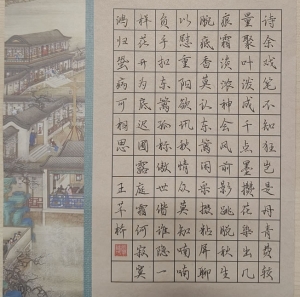 诗余戏笔不知狂岂是丹青费较
量聚叶泼成千点墨攒花染出几
痕霜淡浓神会风前影跳脱秋生
腕底香莫认东篱闲采掇粘屏聊
以慰重阳欲讯秋情众莫知喃喃
负手扣东篱孤标傲世偕谁隐一
样花开为底迟圃露庭霜何寂寞
鸿归蛩病可相思
王